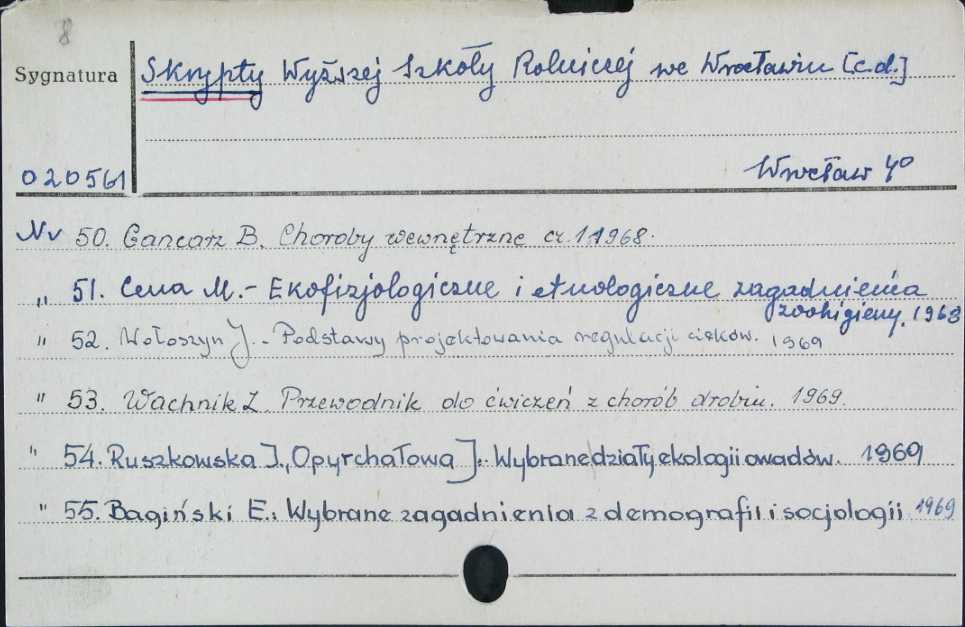 8
Sygnatura
Skrypty Wyższej Szkoły Rolniczej we Wrocławiu [c.d.]
Wrocław 4°
020561
Nr 50. Gancarz B. Choroby wewnętrzne cz. 1. 1968.
„ 51. Cena M. - Ekofizjologiczne i etnologiczne zagadnienia
zoohigieny. 1968
" 52. Wołoszyn J. - Podstawy projektowania regulacji cieków. 1969
" 53. Wachnik Z. Przewodnik do ćwiczeń z chorób drobiu. 1969.
" 54. Ruszkowska J., Opyrchałowa J. Wybrane działy ekologii owadów. 1969
" 55. Bagiński E.: Wybrane zagadnienia z demografii i socjologii 1969